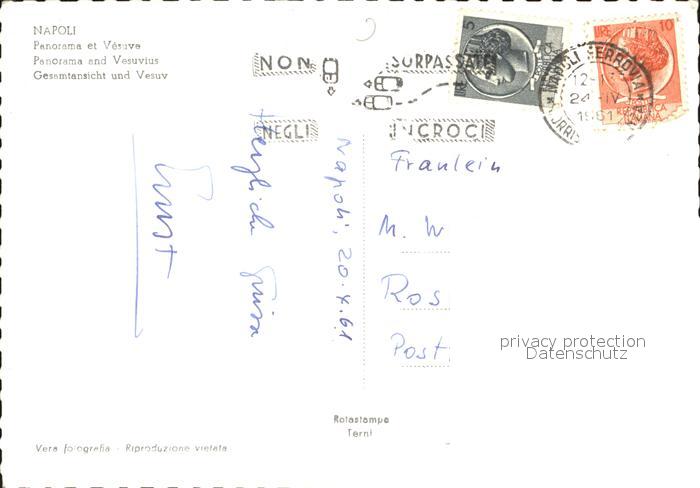 NAPOLI
Panorama et Vésuve
Panorama and Vesuvius
Gesamtansicht und Vesuv
NON SORPASSATE
NEGLI INCROCI
5 LIRE
LIRE 10
NAPOLI FERROVIA
12-
24 IV
1961
Napoli, 20.4.61
Herzliche Grüsse
Ernst
Fräulein
M. W
Ros
Post
privacy protection
Datenschutz
Rotastampa
Terni
Vera fotografia - Riproduzione vietata